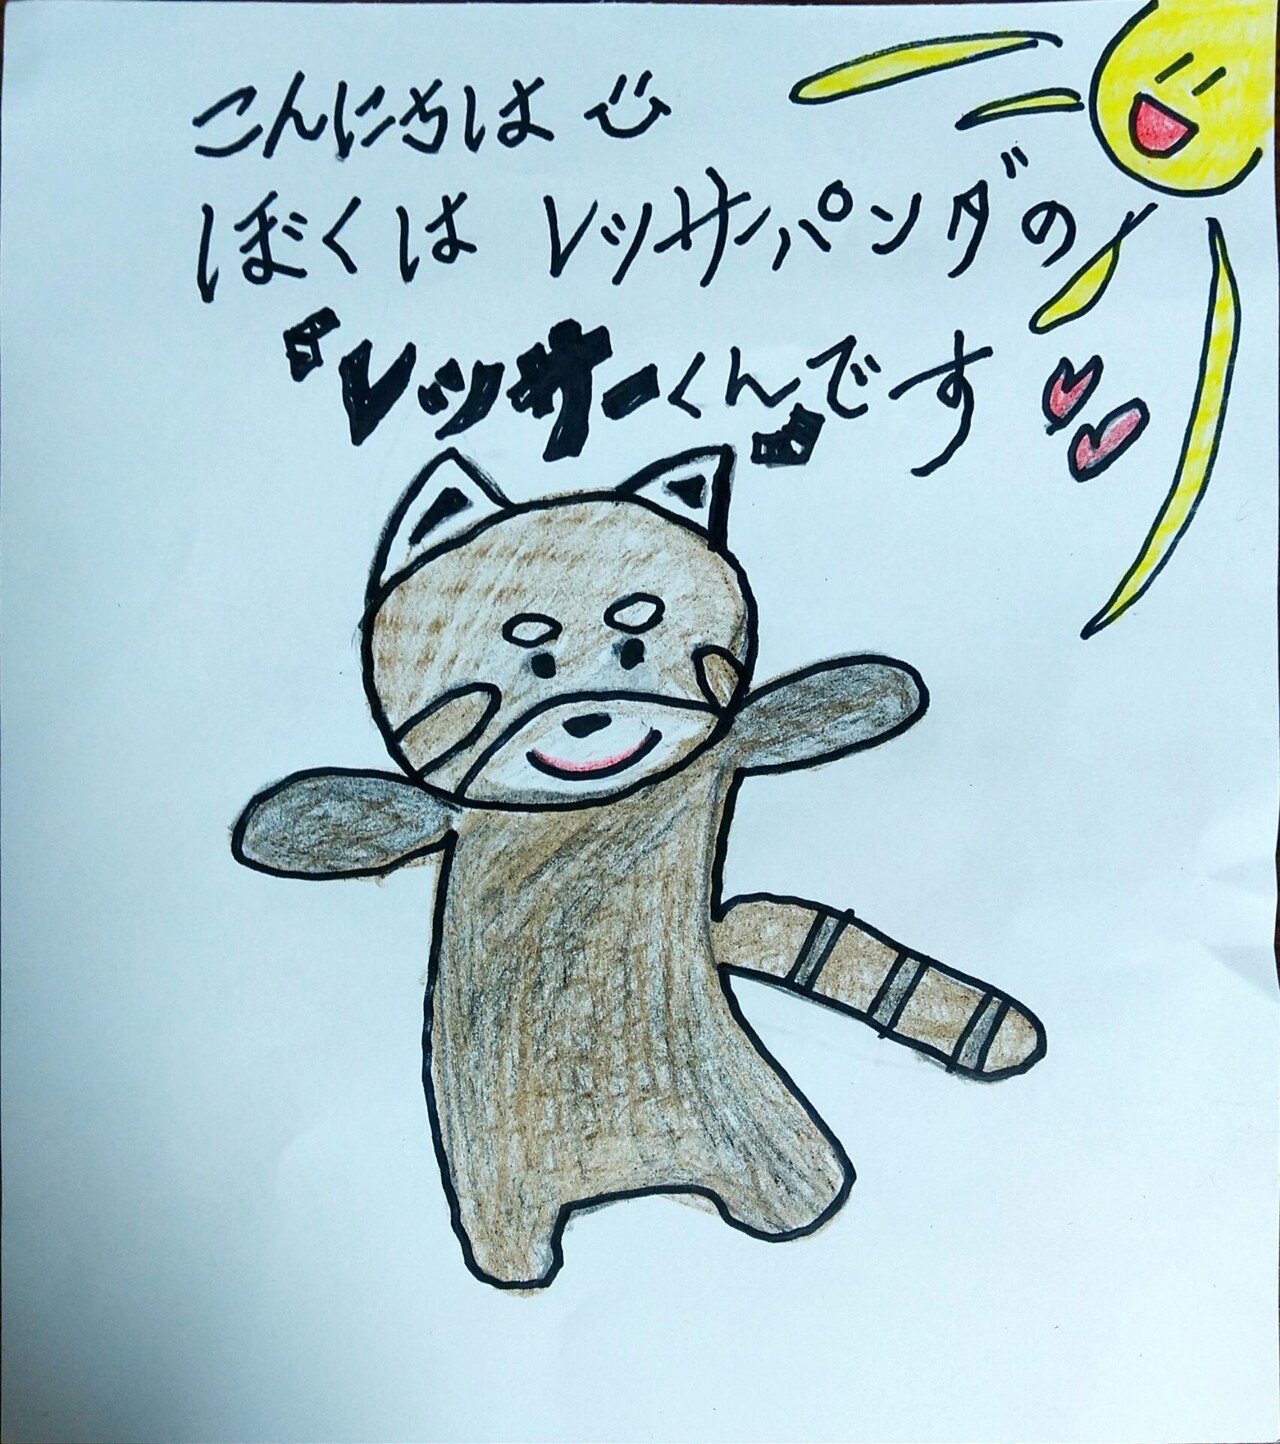 こんにちは
ぼくは レッサーパンダの
『レッサーくん』です